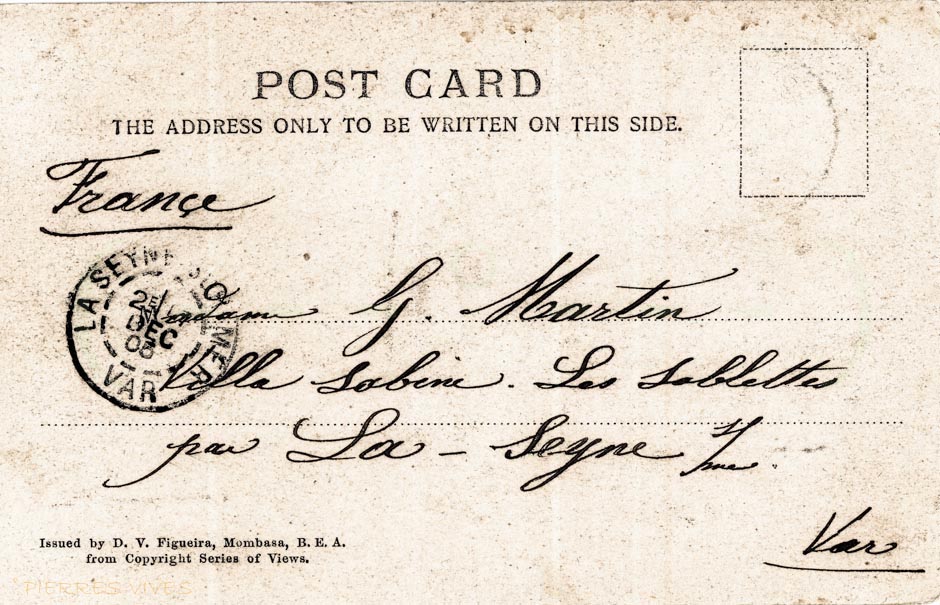 POST CARD
THE ADDRESS ONLY TO BE WRITTEN ON THIS SIDE.
France
LA SEYNE S/O MER
21
DEC
05
VAR
Madame G. Martin
Villa Sabine. Les Sablettes
par La-Seyne s/mer
Var
Issued by D. V. Figueira, Mombasa, B. E. A.
from Copyright Series of Views.
PIERRES VIVES